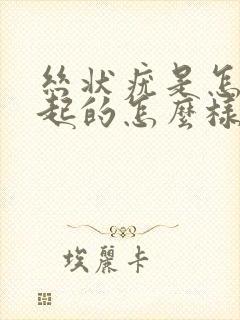 絲狀疣是怎
起的怎麼樣
埃麗卡